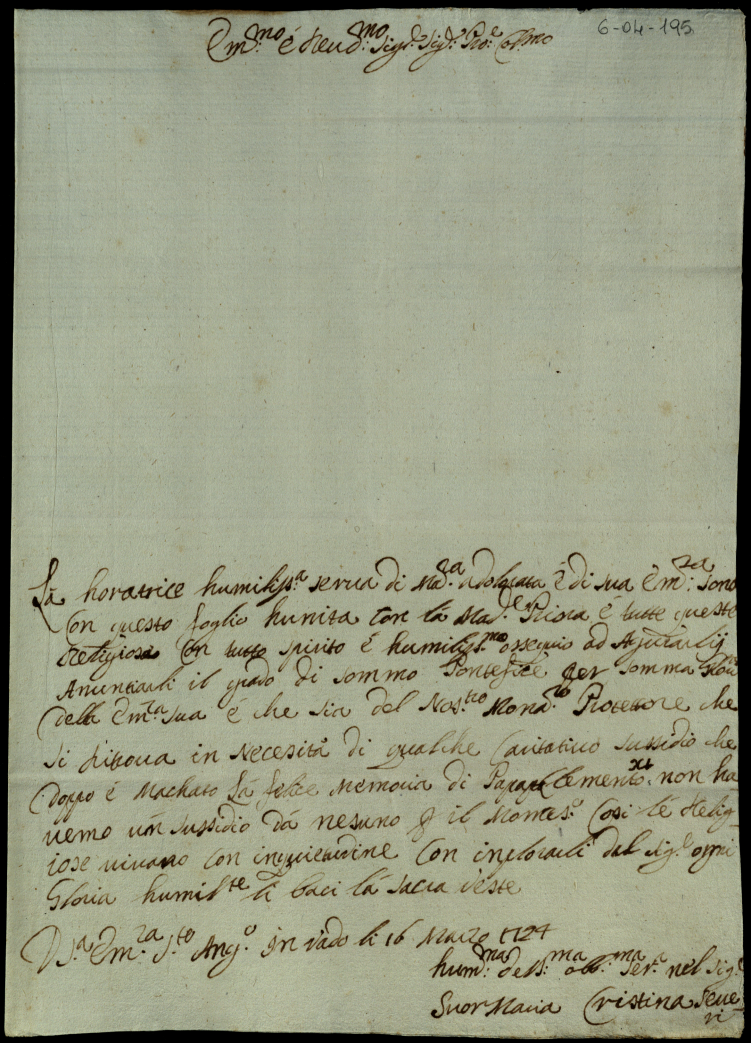 6-04-195
Em:mo é Reud:mo Sig.r Sig.r Pro.e Col:mo
La horatrice humiliss.a serua di Ma.a adolorata é di sua Em:za sono
Con questo foglio hunita con la Mad.e Priora e tutte queste
Religiose Con tutto spirito é humiliss:mo ossequio ad
Anuntiarli il grado di sommo Pontefice per somma Gloria
della Em:za sua é che sia del Nos:tro Mona:ro Protettore che
si ritroua in Necesità di qualche Caritatiuo sussidio che
doppo é Machato La felice Memoria di Papa Clemento XI non ha
uemo un sussidio da nesuno il Montes.o Cosi le Relig
iose uiuano con inquietudine Con inplorarli dal Sig.e ogni
Gloria humil:te li baci la sacra ueste
D V.a Em:za S:to Ang.o In Vado li 16 Marzo 1724
hum:ma deu:ma obl:ma Ser.a nel Sig.e
Suor Maria Cristina Seue
ri